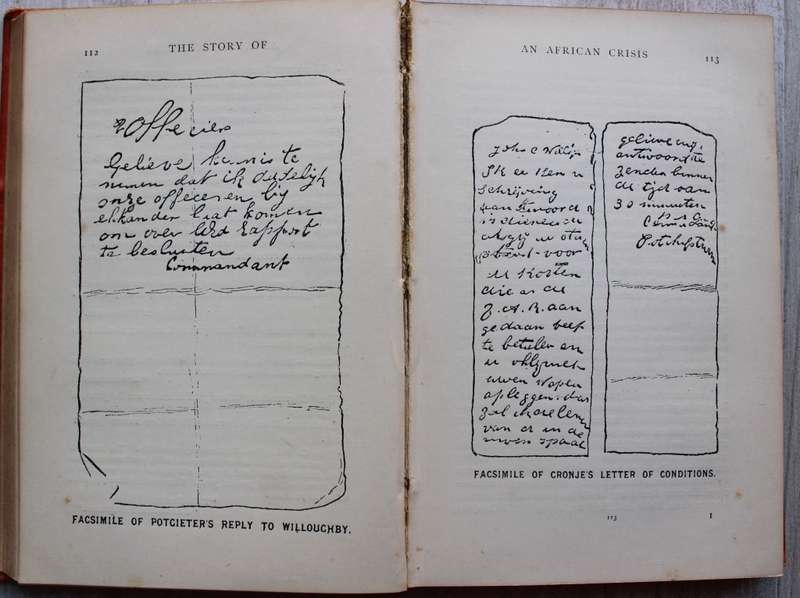 112
THE STORY OF
Officier
Gelieve kennis te
nemen dat ik dadelijk
onze officeren bij
elkander laat komen
om over UEd Rapport
te besluiten
Commandant
FACSIMILE OF POTGIETER'S REPLY TO WILLOUGHBY.
AN AFRICAN CRISIS
113
John C Willi
Ik er ken u
schrijving
van Antwoord
is dienende
als gij
voor
U Kosten
die as de
Z.A.R. aan
gedaan heef
te betalen en
u
uwen Wapen
afleggen. dan
zal ik de leven
van er in de
uwen spaal
gelieve mij,
antwoord te
zenden binnen
de tijd van
30 minuten
Potchefstroom
FACSIMILE OF CRONJE'S LETTER OF CONDITIONS.
113
I